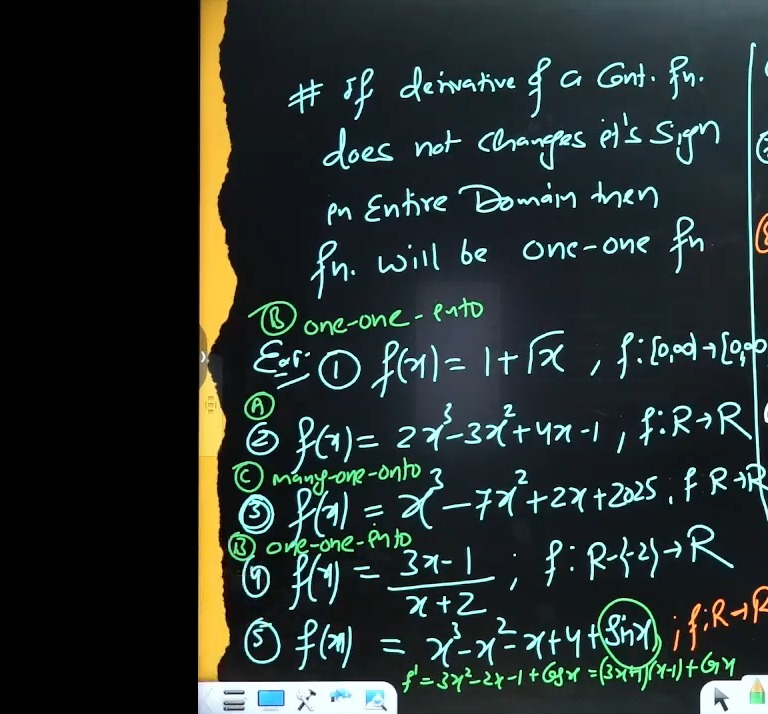 # If derivative of a Cont. fn.
does not changes it's Sign
in Entire Domain then
fn. will be one-one fn
(B) one-one-into
Exr: (1) f(x) = 1+√x , f:[0,∞)→[0,∞
(A)
(2) f(x) = 2x³-3x²+4x-1 , f:R→R
(C) many-one-onto
(3) f(x) = x³-7x²+2x+2025, f R→R
(B) one-one-into
(4) f(x) = (3x-1)/(x+2) ; f:R-{-2}→R
(5) f(x) = x³-x²-x+4+sinx ; f:R→R
f' = 3x²-2x-1+Cosx = (3x+1)(x-1)+Cosx